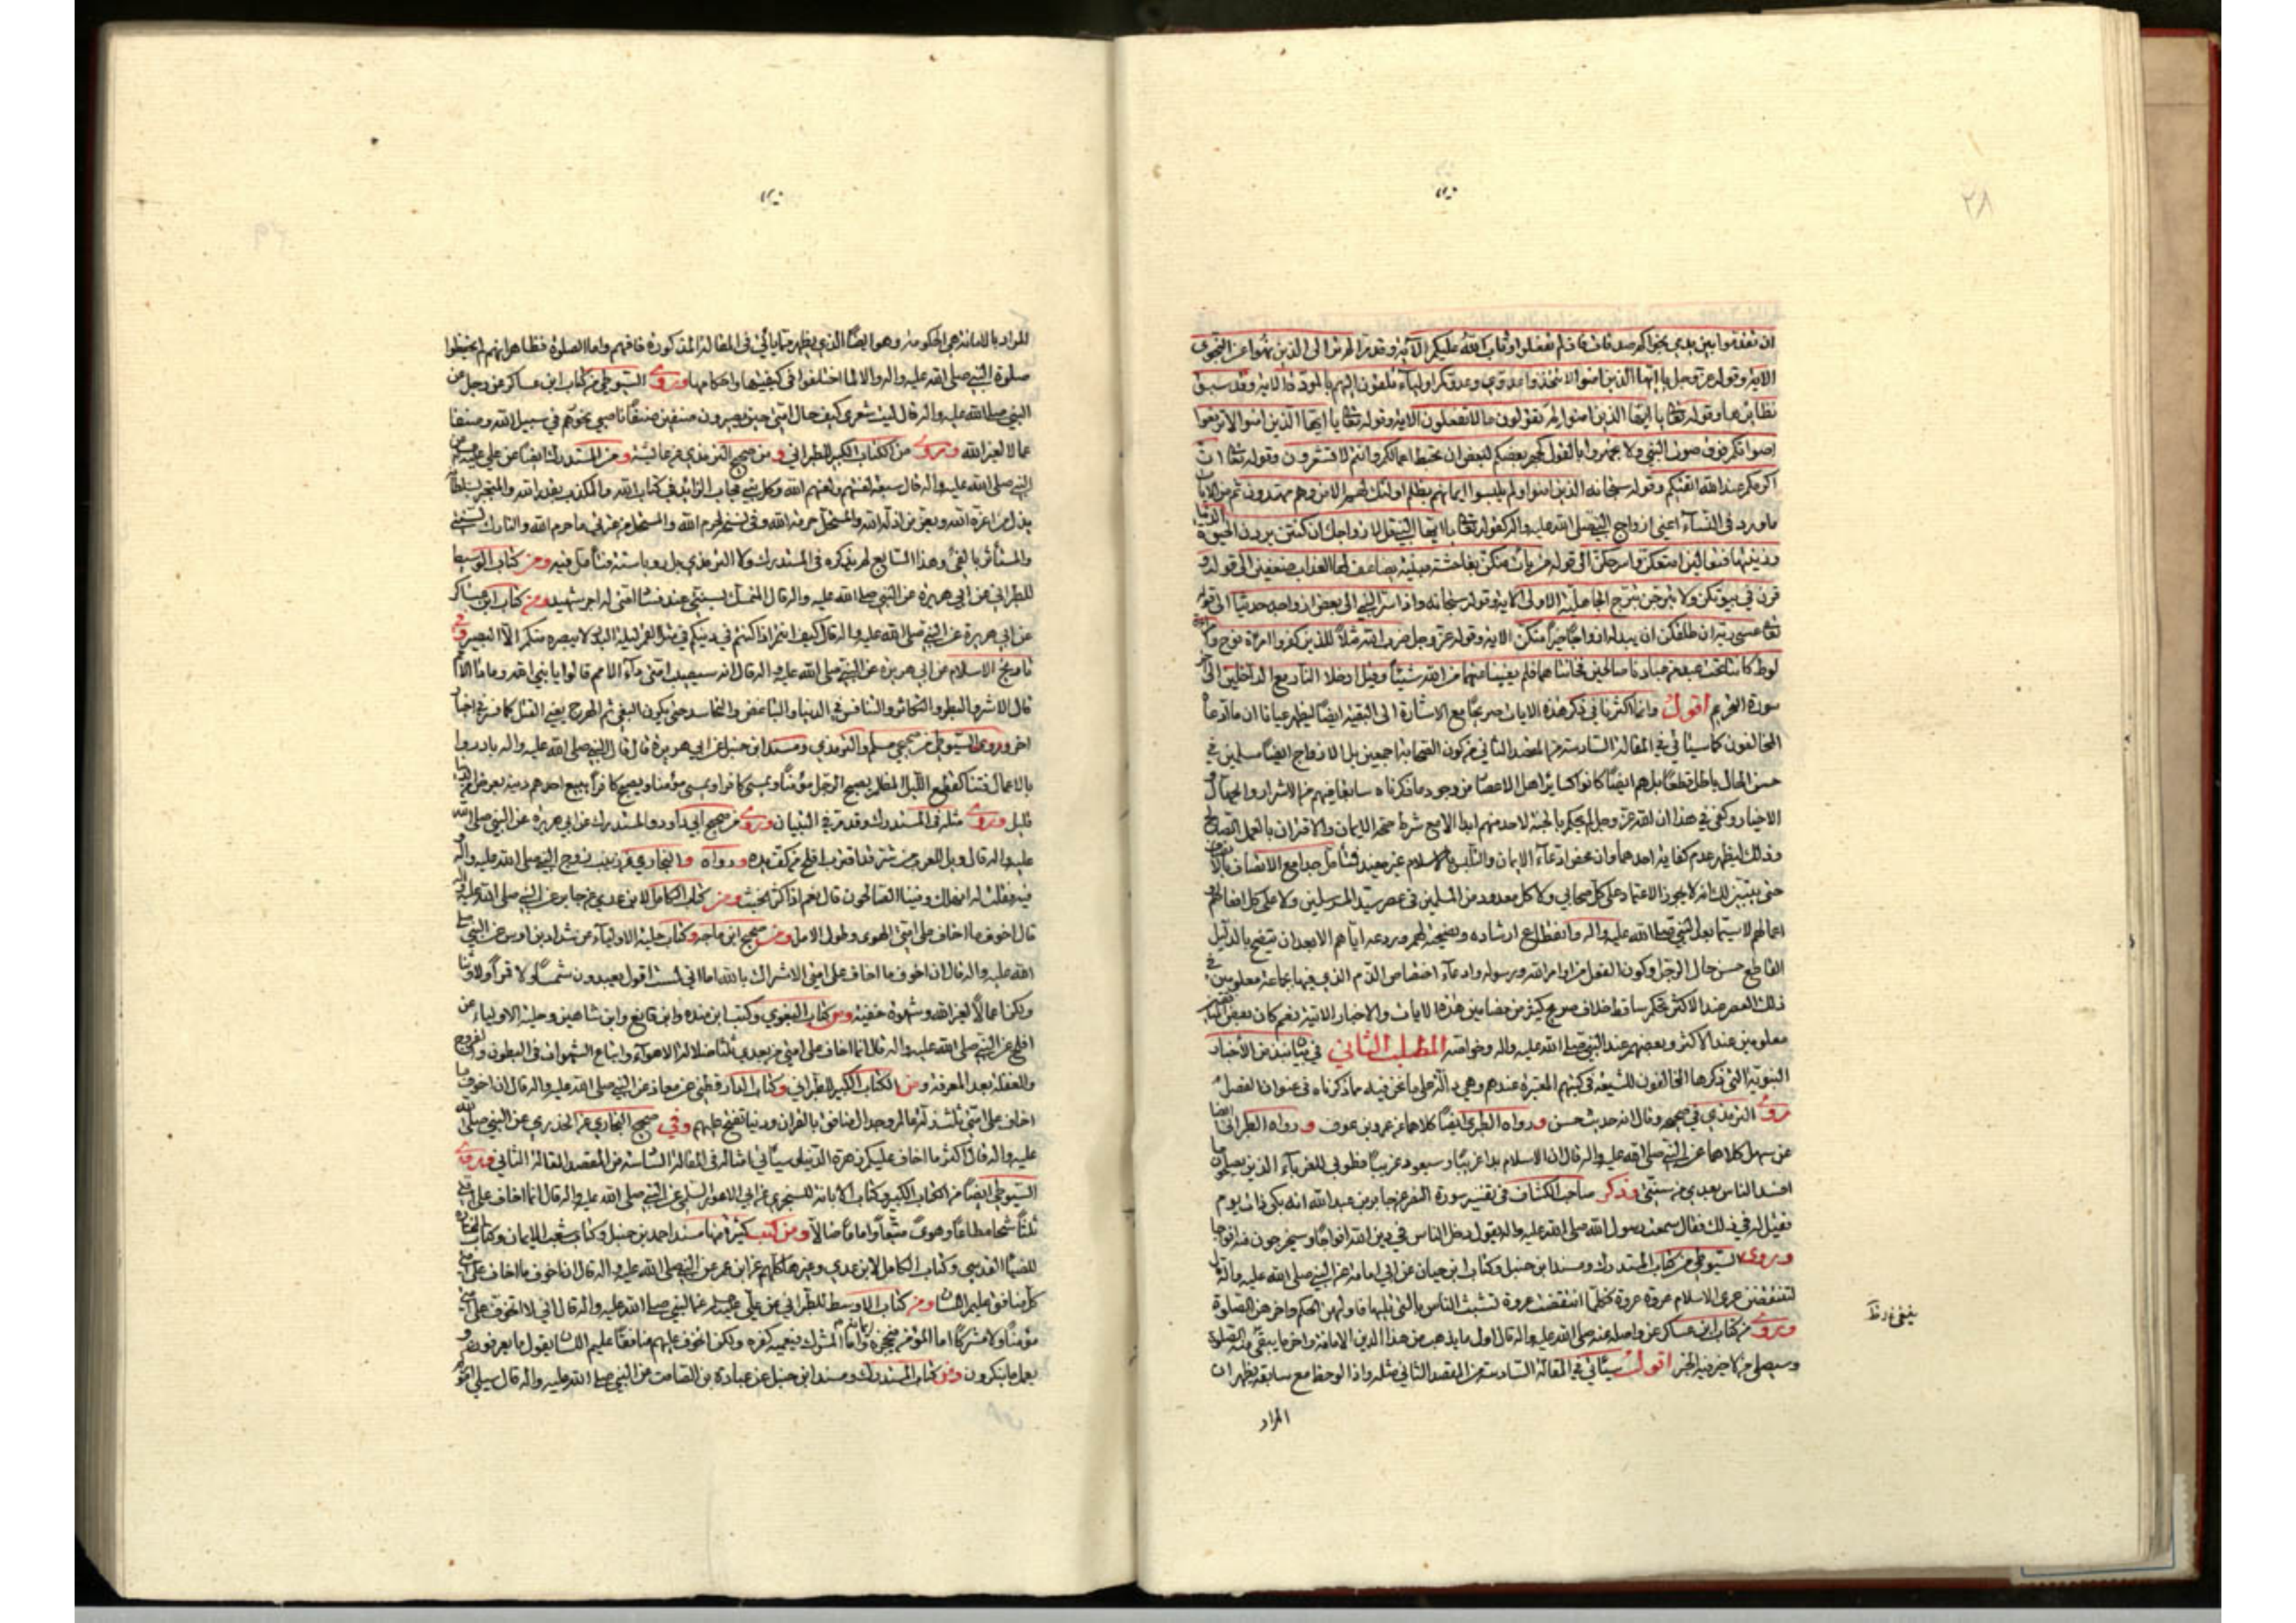 ان تقدموا بين يدي نجواكم صدقات فاذ لم تفعلوا وتاب الله عليكم الآية وقد تر الم تر الى الذين نهوا عن النجوى
الاية وقوله عز وجل يا ايها الذين امنوا لا تتخذوا عدوي وعدوكم اولياء تلقون اليهم بالمودة الاية وقد سبق
نظايرها وقوله تعالى يا ايها الذين امنوا لم تقولون ما لا تفعلون الاية وقوله تعالى يا ايها الذين امنوا لا ترفعوا
اصواتكم فوق صوت النبي ولا تجهروا له بالقول كجهر بعضكم لبعض ان تحبط اعمالكم وانتم لا تشعرون وقوله تعالى ان
اكرمكم عند الله اتقيكم وقوله سبحانه الذين امنوا ولم يلبسوا ايمانهم بظلم اولئك لهم الامن وهم مهتدون ثم من الايات
ما ورد في النسآء اعني ازواج النبي صلى الله عليه واله كقوله تعالى يا ايها النبي قل لازواجك ان كنتن تردن الحيوة الدنيا
وزينتها فتعالين امتعكن واسرحكن الى قوله من يات منكن بفاحشة مبينة يضاعف لها العذاب ضعفين الى قوله و
قرن في بيوتكن ولا تبرجن تبرج الجاهلية الاولى الاية وقوله سبحانه واذ اسر النبي الى بعض ازواجه حديثا الى قوله
تعالى عسى ربه ان طلقكن ان يبدله ازواجا خيرا منكن الاية وقوله عز وجل ضرب الله مثلا للذين كفروا امرأة نوح وامرأة
لوط كانتا تحت عبدين من عبادنا صالحين فخانتاهما فلم يغنيا عنهما من الله شيئا وقيل ادخلا النار مع الداخلين الى اخر
سورة التحريم اقول وانما اكثرنا في ذكر هذه الايات صريحا مع الاشارة الى البقية ايضا ليظهر عيانا ان ما ادعاه
المخالفون كما سيأتي في المقالة السادسة من المقصد الثاني من كون الصحابة اجمعين بل الازواج ايضا مسلمين في
حسن الحال باطل قطعا بل هم ايضا كانوا كساير اهل الاعصار من وجود ما ذكرناه سابقا فيهم من الاشرار والجهال و
الاخيار وكفى في هذا ان الله عز وجل لم يحكم بالجنة لاحد منهم ابدا الا مع شرط صحة الايمان والاقتران بالعمل الصالح
وذلك ليظهر عدم كفاية احدهما وان محض ادعاء الايمان والتلبس بالاسلام غير مفيد فتأمل جدا مع الانصاف
حتى يتبين لك انه لا يجوز الاعتماد على كل صحابي ولا كل معدود من المسلمين في عصر سيد المرسلين ولا على كل افعالهم و
اعمالهم لا سيما بعد النبي صلى الله عليه واله وانقطاع ارشاده ونصيحته لهم وردعه اياهم الا بعد ان يتضح بالدليل
القاطع حسن حال الرجل وكون الفعل من اوامر الله ورسوله وادعاء اختصاص الذم الذي فيها بجماعة معلومين في
ذلك العصر عند الاكثر تحكم ساقط خلاف صريح كثير من مضامين هذه الايات والاخبار الاتية نعم كان بعض
معلومين عند الاكثر وبعضهم عند النبي صلى الله عليه واله وخواصه المطلب الثاني في بيان نبذ من الأخبار
النبوية التي ذكرها المخالفون للشيعة في كتبهم المعتبرة عندهم وهي دالة على ما نحن فيه مما ذكرناه في عنوان الفصل
روى الترمذي في صحيحه وقال انه حديث حسن ورواه الطبري ايضا كلاهما عن عمرو بن عوف ورواه الطبراني ايضا
عن سهل كلاهما عن النبي صلى الله عليه واله قال ان الاسلام بدا غريبا وسيعود غريبا فطوبى للغرباء الذين يصلحون ما
افسد الناس بعدي من سنتي وذكر صاحب الكشاف في تفسير سورة النصر عن جابر بن عبد الله انه بكى ذات يوم
فقيل له في ذلك فقال سمعت رسول الله صلى الله عليه واله يقول دخل الناس في دين الله افواجا وسيخرجون منه افواجا
وروى السيوطي من كتاب المستدرك ومسند ابن حنبل وكتاب ابن حيان عن ابي امامة عن النبي صلى الله عليه واله قال
لتنتقضن عرى الاسلام عروة عروة فكلما انتقضت عروة تشبث الناس بالتي تليها فاولهن الحكم واخرهن الصلوة
وروى من كتاب ابن عساكر عن واصله عنه صلى الله عليه واله قال اول ما يذهب من هذا الدين الامانة واخر ما يبقى منه الصلوة
وسيصلي من لا خير فيه الخبر اقول سيأتي في المقالة السادسة من المقصد الثاني مثله واذا لوحظ مع سابقه يظهر ان
المراد
٢٨
المراد بالامانة هي الحكومة وهو ايضا الذي يظهر مما يأتي في المقالة المذكورة فافهم واما الصلوة فظاهر انهم لم يحفظوا
صلوة النبي صلى الله عليه واله والا لما اختلفوا في كيفيتها واحكامها وروى السيوطي من كتاب ابن عساكر عن رجل عن
النبي صلى الله عليه واله قال ليت شعري كيف حال امتي حين يصيرون صنفين صنفا ناصبي نحورهم في سبيل الله وصنفا
عمالا لغير الله وروى من الكتاب الكبير للطبراني ومن صحيح الترمذي عن عائشة ومن المستدرك ايضا عن علي عليه السلم عن
النبي صلى الله عليه واله قال سبعة لعنتهم ولعنهم الله وكل نبي مجاب الزائد في كتاب الله والمكذب بقدر الله والمتجبر بسلطانه
يذل من اعزه الله ويعز من اذله الله والمستحل حرمة الله وفي نسخة لحرم الله والمستحل من عترتي ما حرم الله والتارك لسنتي
والمستأثر بالفئ وهذا السابع لم يذكره في المستدرك ولا الترمذي بل رويا ستة فتأمل فيه ومن كتاب الاوسط
للطبراني عن ابي هريرة عن النبي صلى الله عليه واله قال المتمسك بسنتي عند فساد امتي له اجر شهيد ومن كتاب ابن عساكر
عن ابي هريرة عن النبي صلى الله عليه واله قال كيف انتم اذا كنتم في دينكم في مثل القمر ليلة البدر لا يبصره منكم الا البصير وفي
تاريخ الاسلام عن ابي هريرة عن النبي صلى الله عليه واله قال انه سيصيب امتي داء الامم قالوا يا نبي الله وما داء الامم
قال الاشر والبطر والتكاثر والتنافس في الدنيا والتباغض والتحاسد حتى يكون البغي ثم الهرج يعني القتل كما فسر في اخبار
اخر وروى السيوطي من صحيحي مسلم والترمذي ومسند ابن حنبل عن ابي هريرة قال قال النبي صلى الله عليه واله بادروا
بالاعمال فتنا كقطع الليل المظلم يصبح الرجل مؤمنا ويمسي كافرا ويمسي مؤمنا ويصبح كافرا يبيع احدهم دينه بعرض من الدنيا
قليل وروى مثله في المستدرك وقد مر في التبيان وروى من صحيح ابي داود والمستدرك عن ابي هريرة عن النبي صلى الله
عليه واله قال ويل للعرب من شر قد اقترب افلح من كف يده ورواه والبخاري عن زينب زوج النبي صلى الله عليه واله و
فيه فقلت له انهلك وفينا الصالحون قال نعم اذا كثر الخبث ومن كتاب الكامل لابن عدي عن جابر عن النبي صلى الله عليه واله
قال اخوف ما اخاف على امتي الهوى وطول الامل ومن صحيح ابن ماجه وكتاب حلية الاولياء عن شداد بن اوس عن النبي صلى
الله عليه واله قال ان اخوف ما اخاف على امتي الاشراك بالله اما اني لست اقول يعبدون شمسا ولا قمرا ولا وثنا
ولكن اعمالا لغير الله وشهوة خفية ومن كتاب البغوي وكتب ابن منده وابن قانع وابن شاهين وحلية الاولياء عن
افلح عن النبي صلى الله عليه واله قال انما اخاف على امتي من بعدي ثلثا ضلالة الاهواء واتباع الشهوات في البطون والفروج
والغفلة بعد المعرفة ومن الكتاب الكبير للطبراني وكتاب الدارقطني عن معاذ عن النبي صلى الله عليه واله قال ان اخوف ما
اخاف على امتي ثلث زلة عالم وجدال منافق بالقران ودنيا تفتح عليهم وفي صحيح البخاري عن الخدري عن النبي صلى الله
عليه واله قال اكثر ما اخاف عليكم زهرة الدنيا وسيأتي امثاله في المقالة السادسة من المقصد الثاني وروى
السيوطي ايضا من الكتاب الكبير وكتاب الابانة للسجزي عن ابي الاعور السلمي عن النبي صلى الله عليه واله قال انما اخاف على امتي
ثلثا شحا مطاعا وهوى متبعا واماما ضالا ومن كتب كثيرة منها مسند احمد بن حنبل وكتاب شعب الايمان وكتاب المختارة
للضيا المقدسي وكتاب الكامل لابن عدي وغيرها كلهم عن ابن عمر عن النبي صلى الله عليه واله قال ان اخوف ما اخاف على امتي
كل منافق عليم اللسان ومن كتاب الاوسط للطبراني عن علي عليه السلم عن النبي صلى الله عليه واله قال اني لا اتخوف على امتي
مؤمنا ولا مشركا اما المؤمن فيحجزه ايمانه واما المشرك فيقمعه كفره ولكن اتخوف عليهم منافقا عليم اللسان يقول ما يعرفون و
يعمل ما ينكرون ومن كتاب المستدرك ومسند ابن حنبل عن عبادة بن الصامت عن النبي صلى الله عليه واله قال سيلي